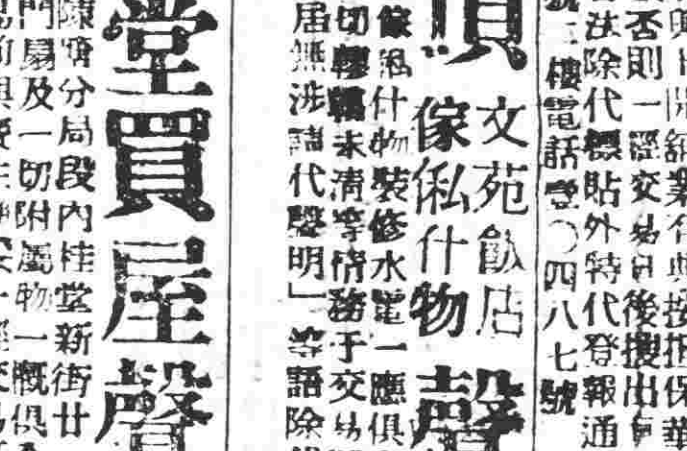 否則一經交易日後搜出
法除代標貼外特代登報通
號二樓電話壹〇四八七號
頂
文苑飯店
傢俬什物
聲
傢俬什物裝修水電一應俱
切轇轕未清等情務于交易
居無涉請代聲明」等語除
堂買屋聲
陳塘分局段內桂堂新街廿
門扇及一切附屬物一概俱